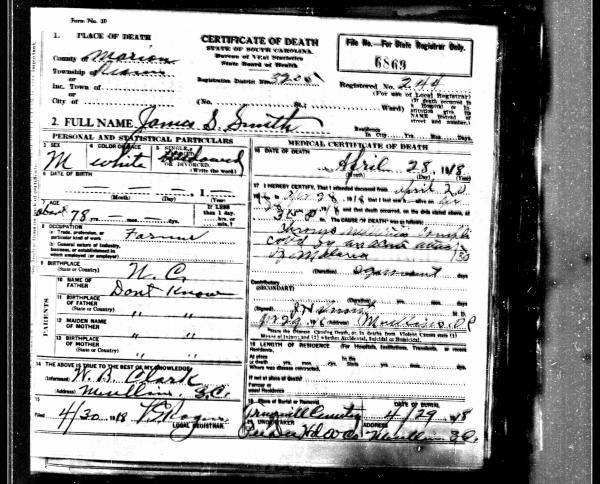 Form No. 10
1. PLACE OF DEATH
CERTIFICATE OF DEATH
STATE OF SOUTH CAROLINA
Bureau of Vital Statistics
State Board of Health
File No.—For State Registrar Only.
6869
County of Marion
Township of
or
Inc. Town of
or
City of
Registration District No.
Registered No. 244
(For use of Local Registrar)
(No. St.; Ward)
(If death occurred in a Hospital or Institution give its NAME instead of street and number.)
2. FULL NAME James S. Smith
Residence
In City Yrs. Mos. Days
PERSONAL AND STATISTICAL PARTICULARS
3 SEX
M
4 COLOR OR RACE
white
5 SINGLE,
OR DIVORCED.
(Write the word)
6 DATE OF BIRTH
— — — , 1
(Month) (Day) (Year)
7 AGE
about 78 yrs. — mos. — dys.
IF LESS than 1 day, hrs. or min.?
8 OCCUPATION
(a) Trade, profession, or particular kind of work
Farmer
(b) General nature of industry, business, or establishment in which employed (or employer)
9 BIRTHPLACE
(State or Country)
N. C.
PARENTS
10 NAME OF FATHER
Dont Know
11 BIRTHPLACE OF FATHER
(State or Country)
" "
12 MAIDEN NAME OF MOTHER
" "
13 BIRTHPLACE OF MOTHER
(State or Country)
" "
14 THE ABOVE IS TRUE TO THE BEST OF MY KNOWLEDGE
(Informant) W. B. Clark
(Address) Mullins, S.C.
15
Filed 4/30 1918
LOCAL REGISTRAR
MEDICAL CERTIFICATE OF DEATH
16 DATE OF DEATH
April 28, 1918
(Month) (Day) (Year)
17 I HEREBY CERTIFY, That I attended deceased from April 20
that I last saw h alive on
and that death occurred, on the date stated above, at
The CAUSE OF DEATH* was as follows:
by an acute attack
of Malaria
(Duration) yrs. mos. days
Contributory
(SECONDARY)
(Duration) yrs. mos. days
(Signed)
(Address) Mullins, S.C.
*State the Disease Causing Death, or, in deaths from Violent Causes state (1) Means of Injury; and (2) whether Accidental, Suicidal or Homicidal.
18 LENGTH OF RESIDENCE (For Hospitals, Institutions, Transients, or recent Residents.
At place of death yrs. mos. days
In the State yrs. mos. days
Where was disease contracted,
If not at place of death?
Former or usual Residence
19 Place of Burial or Removal
DATE OF BURIAL
Cemetery 4/29 1918
20 UNDERTAKER
ADDRESS
Pee Dee Mullins S.C.